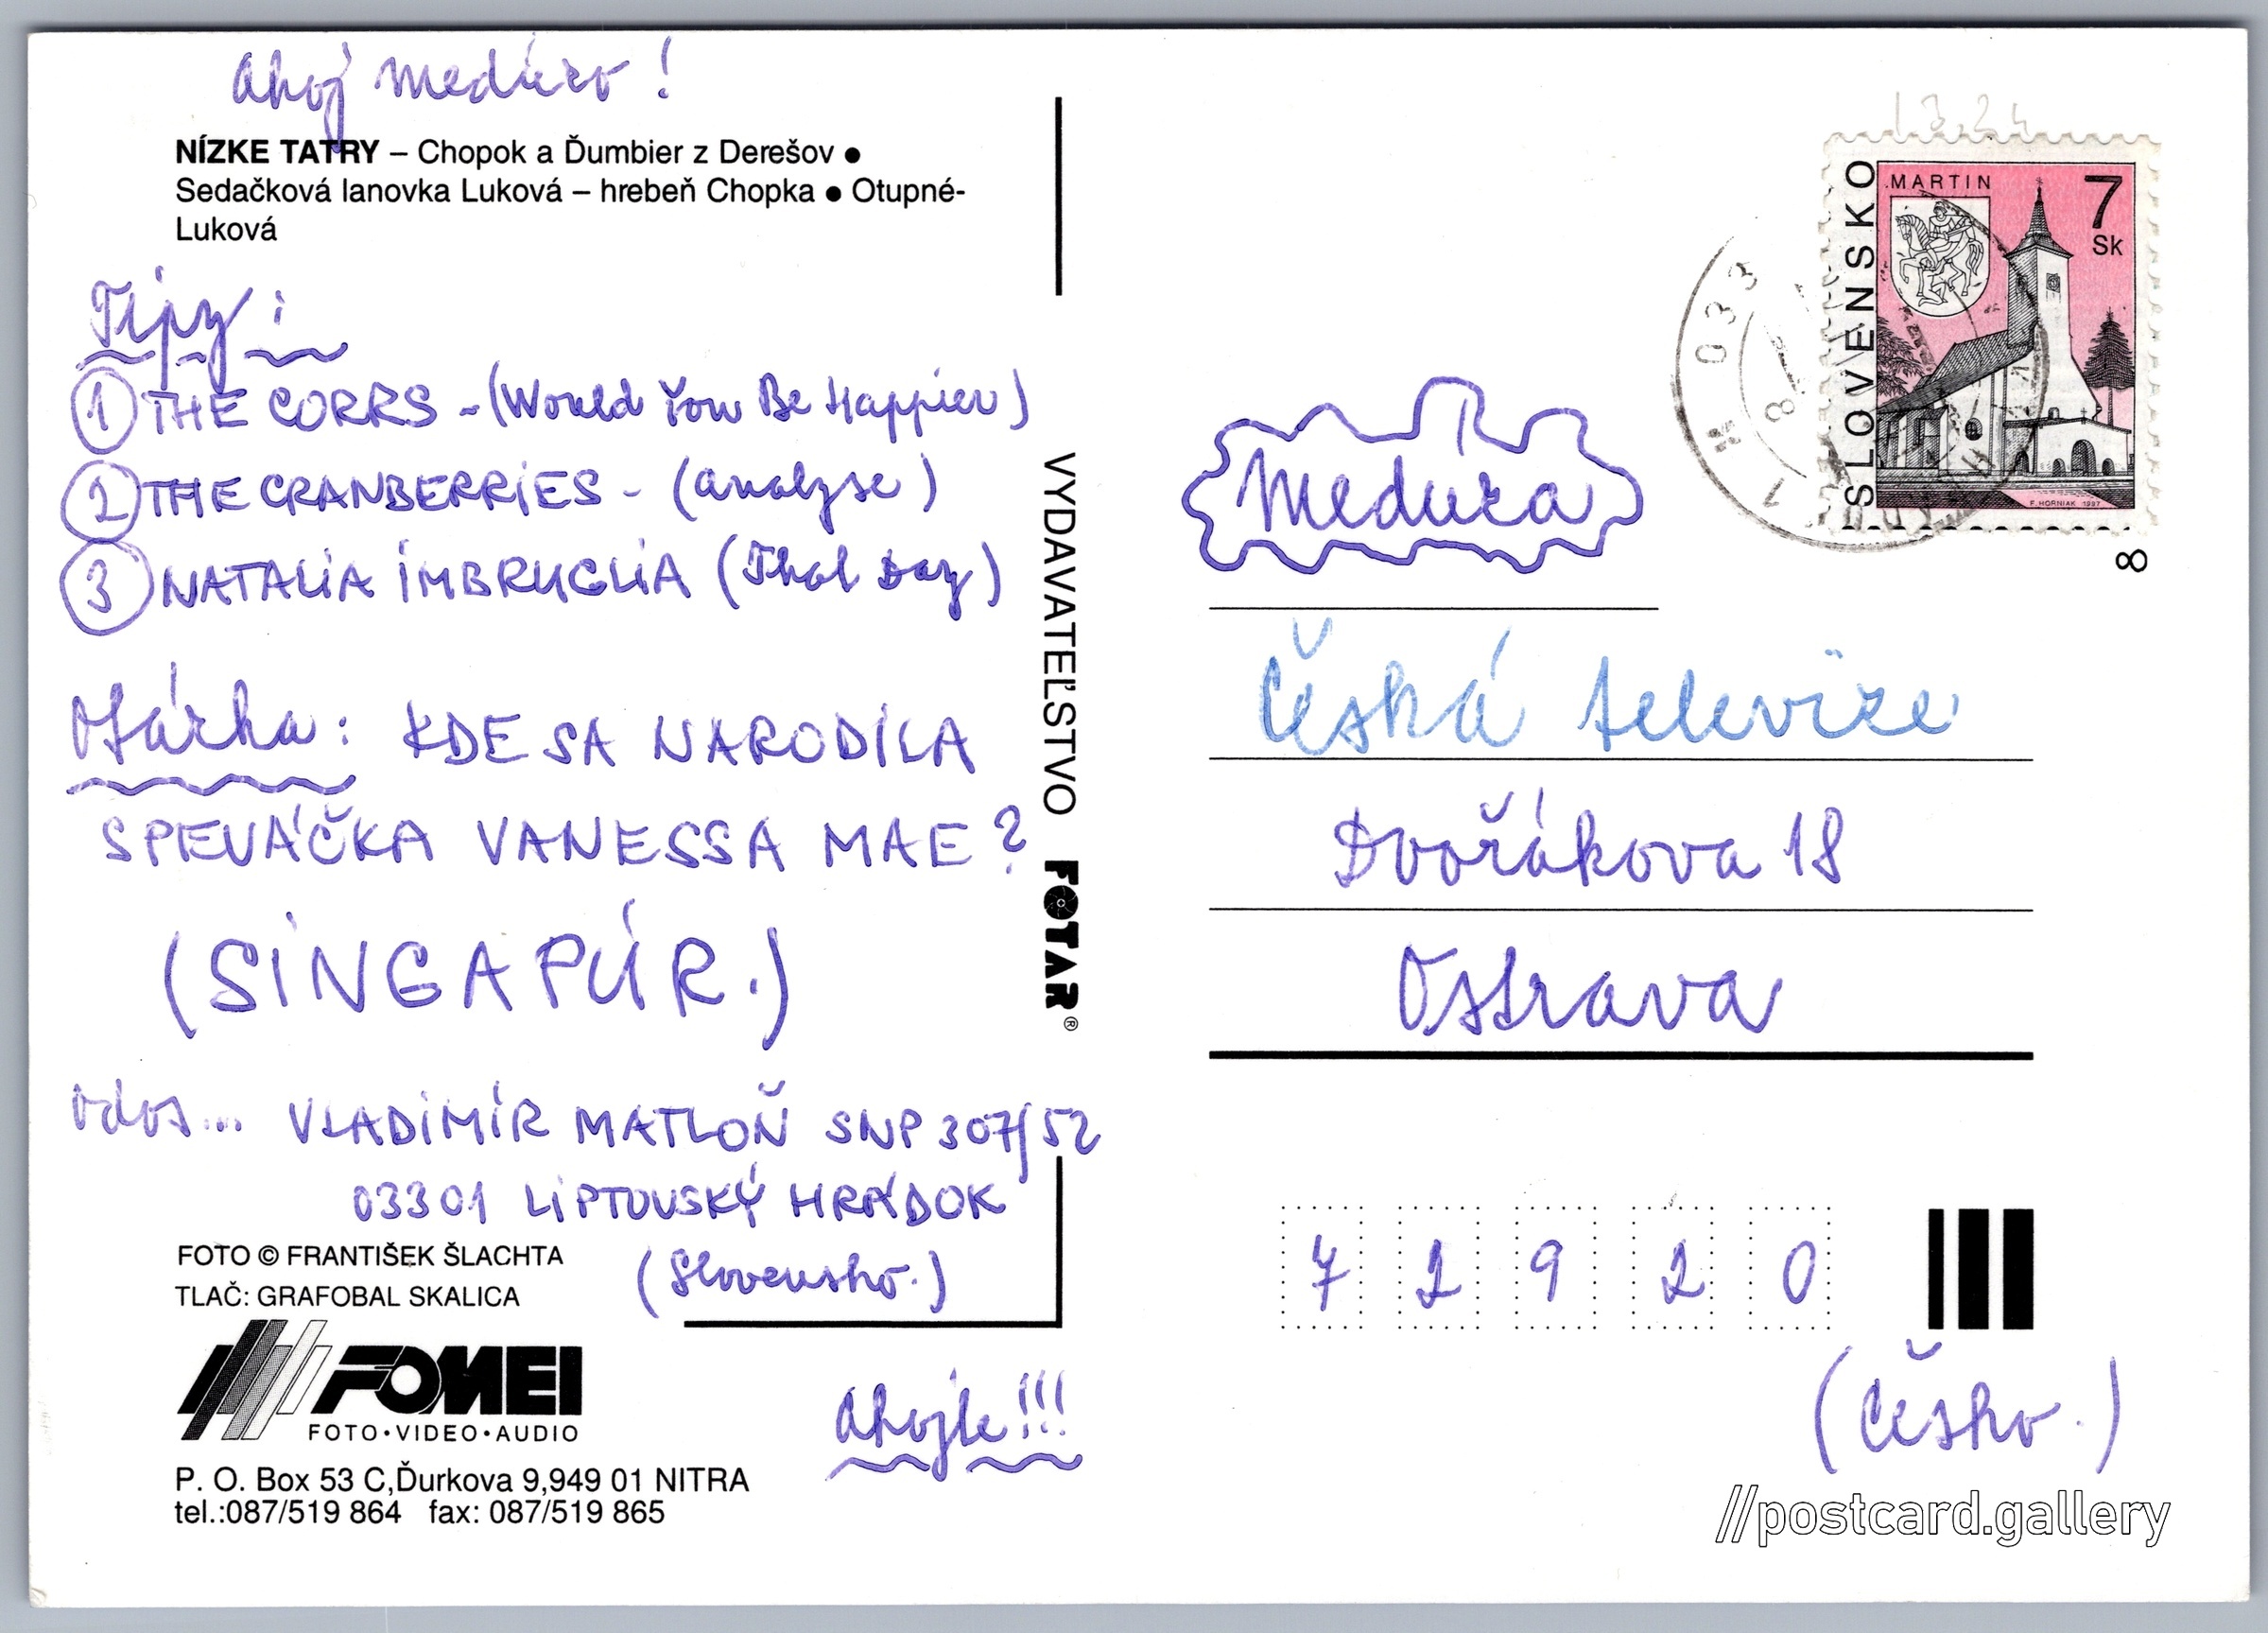 Ahoj Medúzo!
NÍZKE TATRY – Chopok a Ďumbier z Derešov ●
Sedačková lanovka Luková – hrebeň Chopka ● Otupné-
Luková
Tipy:
1 THE CORRS - (Would You Be Happier)
2 THE CRANBERRIES - (Analyse)
3 NATALIA IMBRUGLIA (That Day)
Otázka: KDE SA NARODILA
SPEVÁČKA VANESSA MAE?
(SINGAPÚR.)
Odos... VLADIMÍR MATLOŇ SNP 307/52
03301 LIPTOVSKÝ HRÁDOK
(Slovensko.)
FOTO © FRANTIŠEK ŠLACHTA
TLAČ: GRAFOBAL SKALICA
FOMEI
FOTO•VIDEO•AUDIO
P. O. Box 53 C,Ďurkova 9,949 01 NITRA
tel.:087/519 864 fax: 087/519 865
Ahojte!!!
VYDAVATEĽSTVO FOTAR®
SLOVENSKO
MARTIN
7
Sk
F. HORNIAK 1997
033
8
Medúza
Česká televize
Dvořákova 18
Ostrava
7 2 9 2 0
(Česko.)
//postcard.gallery